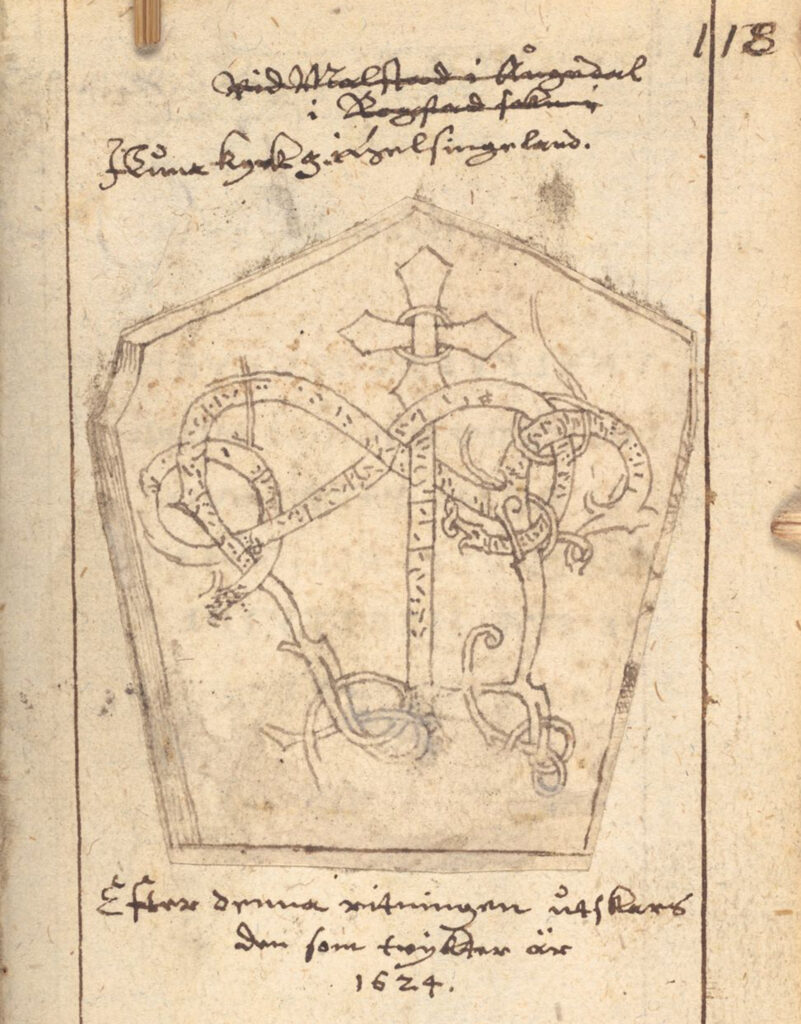 118
Vid Malstad i Ångedal
i Rogstad sokn
i Helsingeland.
Efter denna ritningen utskars
den som tryckter är
1624.